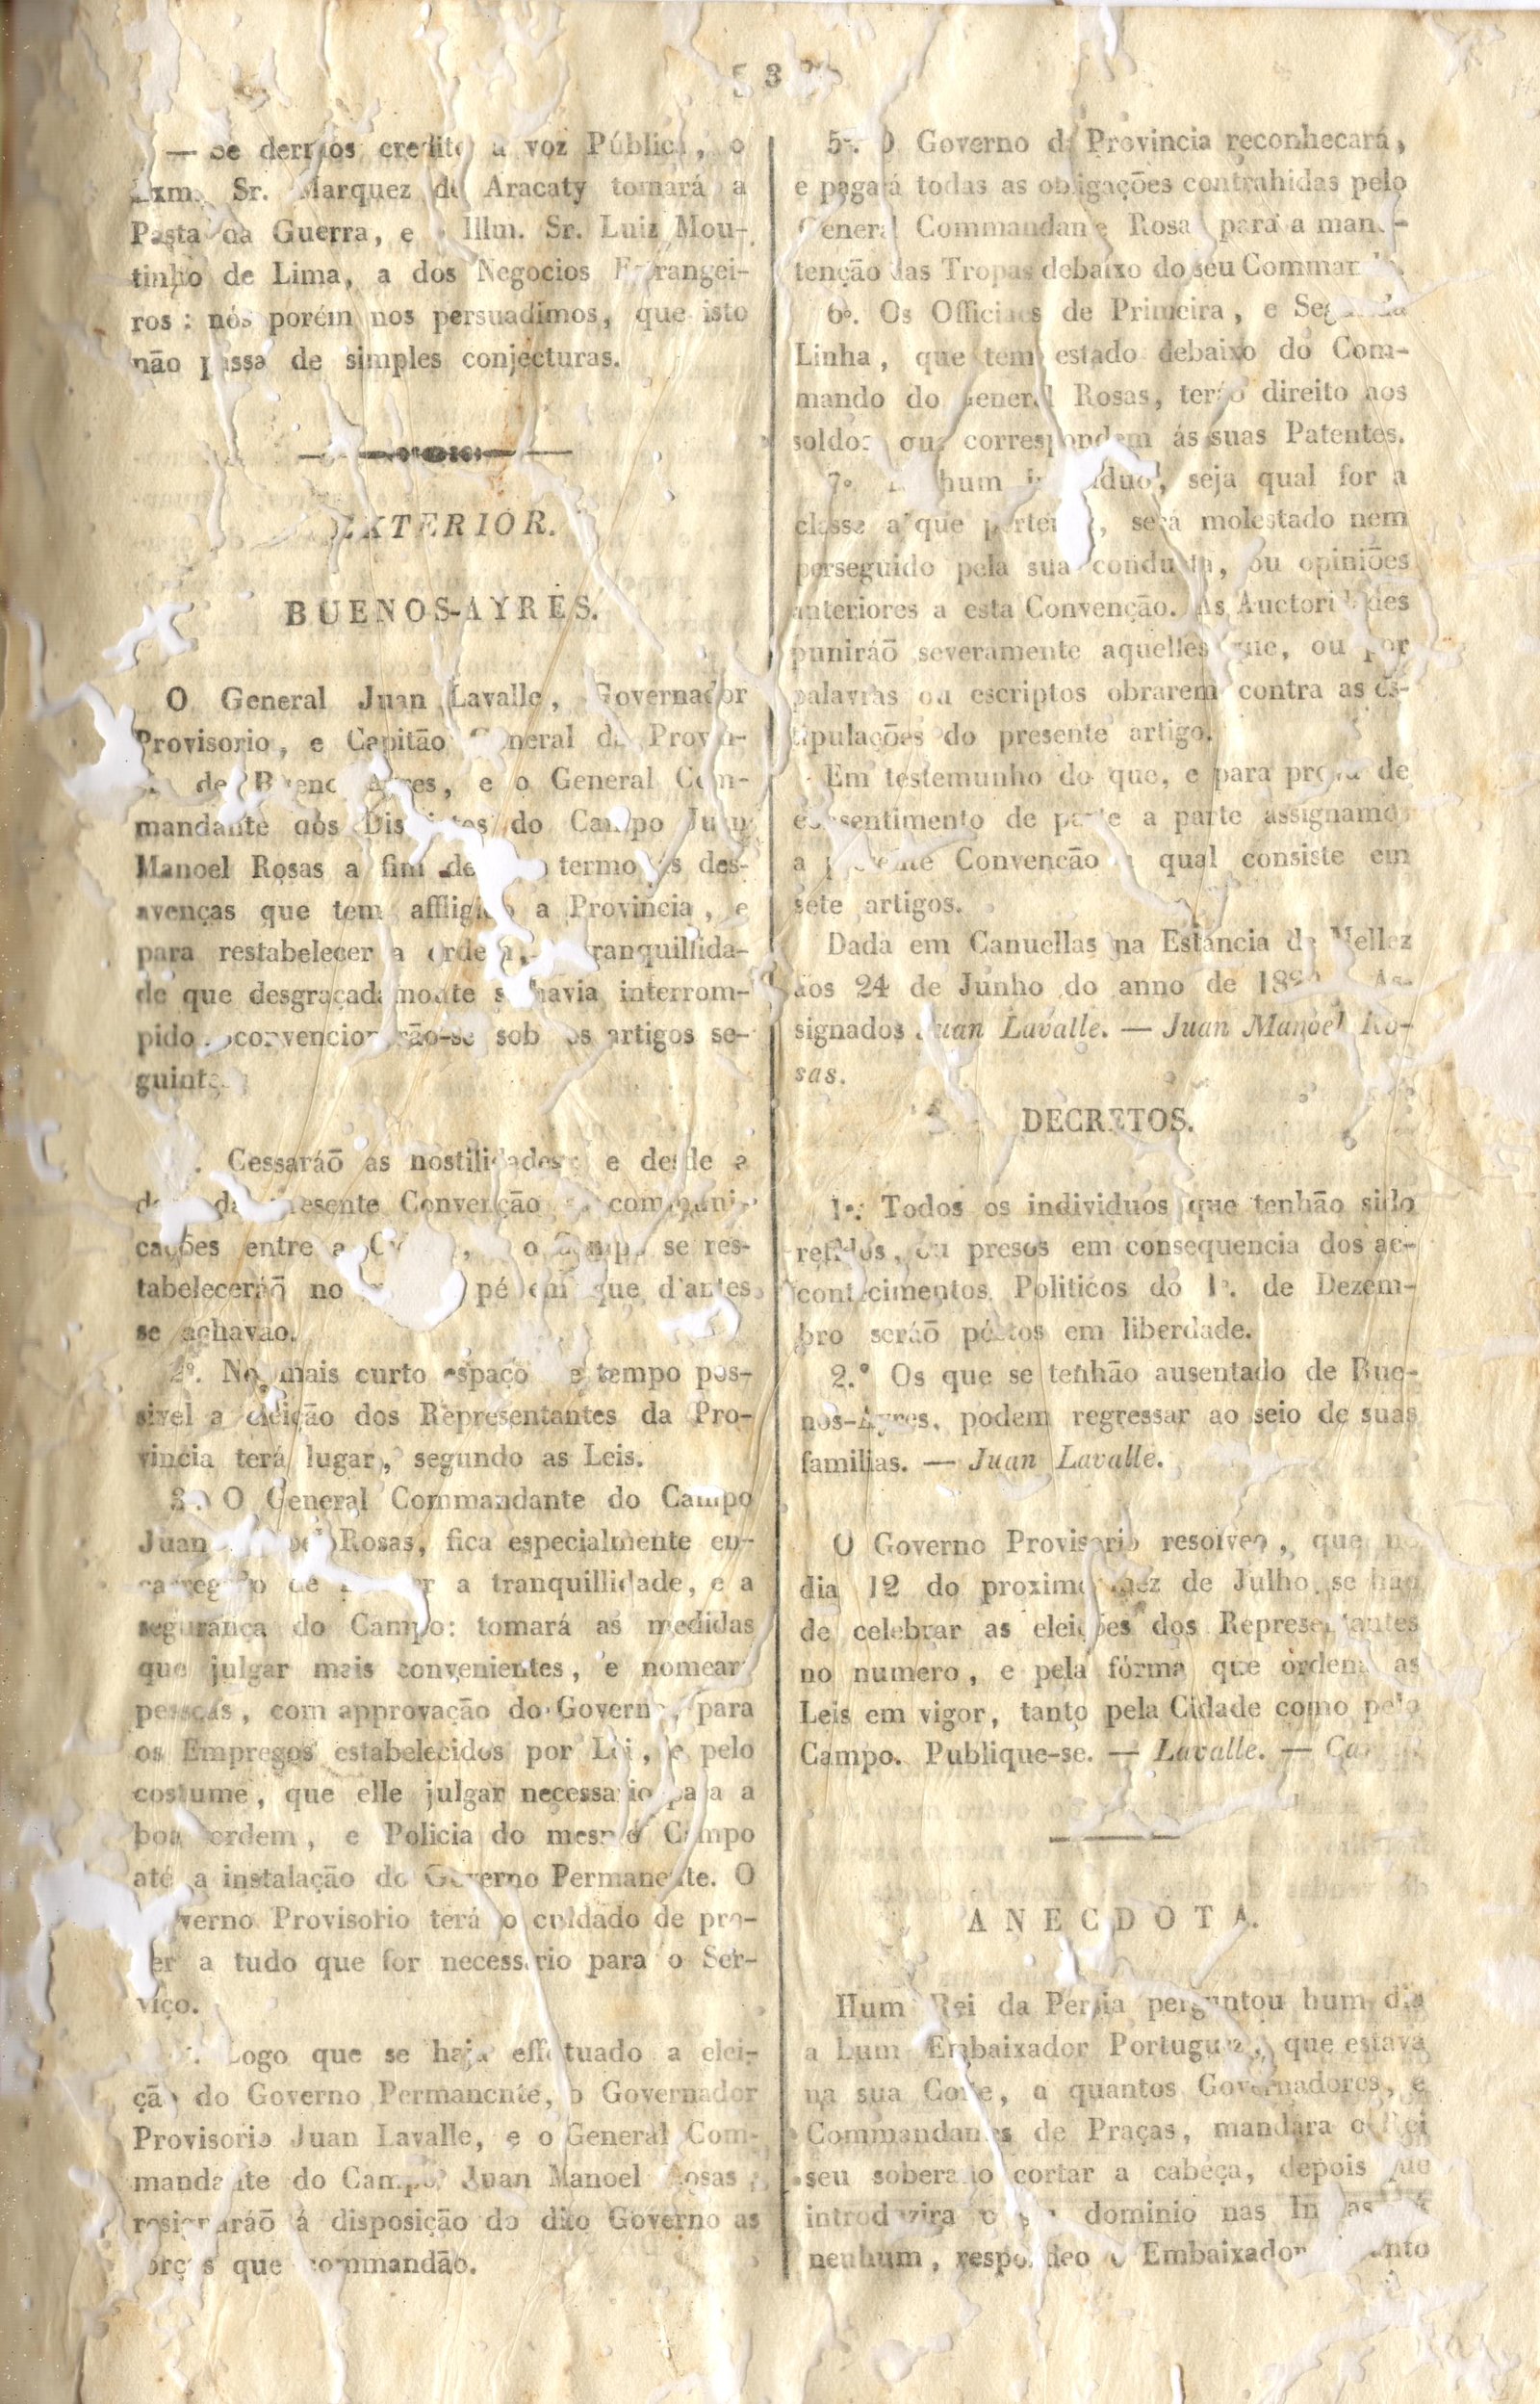 3
— Se dermos credito a voz Pública, o
Exm. Sr. Marquez de Aracaty tomará a
Pasta da Guerra, e o Illm. Sr. Luiz Mou-
tinho de Lima, a dos Negocios Estrangei-
ros: nós porém nos persuadimos, que isto
não passa de simples conjecturas.
EXTERIOR.
BUENOS-AYRES.
O General Juan Lavalle, Governador
Provisorio, e Capitão General da Provin-
de Buenos Ayres, e o General Com-
mandante dos Districtos do Campo Juan
Manoel Rosas a fim de termo ás des-
avenças que tem affligido a Provincia, e
para restabelecer a ordem, tranquillida-
de que desgraçadamente se havia interrom-
pido convencionárão-se sob os artigos se-
guintes
Cessaráõ as hostilidades e desde a
da presente Convenção as communi-
cações entre a o Campo se res-
tabeleceráõ no pé em que d'antes
se achavão.
2º. No mais curto espaço de tempo pos-
sivel a eleição dos Representantes da Pro-
vincia terá lugar, segundo as Leis.
3º. O General Commandante do Campo
Juan Manoel Rosas, fica especialmente en-
carregado de a tranquillidade, e a
segurança do Campo: tomará as medidas
que julgar mais convenientes, e nomeará
pessoas, com approvação do Governo, para
os Empregos estabelecidos por Lei, e pelo
costume, que elle julgar necessario para a
boa ordem, e Policia do mesmo Campo
até a instalação do Governo Permanente. O
Governo Provisorio terá o cuidado de pro-
ver a tudo que for necessario para o Ser-
viço.
Logo que se haja effetuado a elei-
ção do Governo Permanente, o Governador
Provisorio Juan Lavalle, e o General Com-
mandante do Campo Juan Manoel Rosas
resignaráõ á disposição do dito Governo as
forças que commandão.
5º. O Governo da Provincia reconhecará,
e pagará todas as obligações contrahidas pelo
General Commandante Rosas para a manu-
tenção das Tropas debaixo do seu Commando.
6º. Os Officiaes de Primeira, e Segunda
Linha, que tem estado debaixo do Com-
mando do General Rosas, terão direito aos
soldos que correspondem ás suas Patentes.
7º. Nenhum individuo, seja qual for a
classe a que pertença, será molestado nem
perseguido pela sua conducta, ou opiniões
anteriores a esta Convenção. As Auctoridades
puniráõ severamente aquelles que, ou por
palavras ou escriptos obrarem contra as es-
tipulações do presente artigo.
Em testemunho do que, e para prova de
consentimento de parte a parte assignamos
a presente Convencão a qual consiste em
sete artigos.
Dada em Canuellas na Estancia de Mellez
aos 24 de Junho do anno de As-
signados Juan Lavalle. — Juan Manoel Ro-
sas.
DECRETOS.
1º. Todos os individuos que tenhão sido
retidos, ou presos em consequencia dos ac-
contecimentos Politicos do 1º. de Dezem-
bro seráõ póstos em liberdade.
2.º Os que se tenhão ausentado de Bue-
nos-Ayres, podem regressar ao seio de suas
familias. — Juan Lavalle.
O Governo Provisorio resolveo, que no
dia 12 do proximo mez de Julho se hão
de celebrar as eleições dos Representantes
no numero, e pela fórma que ordena as
Leis em vigor, tanto pela Cidade como pelo
Campo. Publique-se. — Lavalle. —
ANECDOTA.
Hum Rei da Persia perguntou hum dia
a hum Embaixador Portuguez, que estava
na sua Corte, a quantos Governadores, e
Commandantes de Praças, mandára o Rei
seu soberano cortar a cabeça, depois que
introduzira o seu dominio nas Indias
nenhum, respondeo o Embaixador